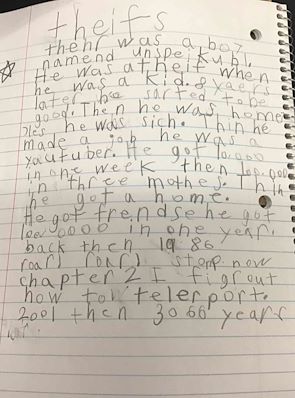 theifs
ther was a boy
namend unspekubl.
He was atheif when
he was a kid. 8 yaers
later he sarted to be
good. Then he was home
les he was sich. Thin he
made a job he was a
youtuber. He got 10,000
in one week then 100,000
in three mothes. Thin
he got a home.
He got frendse he got
in one year.
back then 1986
roar roar stoRe now
chapter 2 I figrout
how to telerport.
2001 then 3066 years